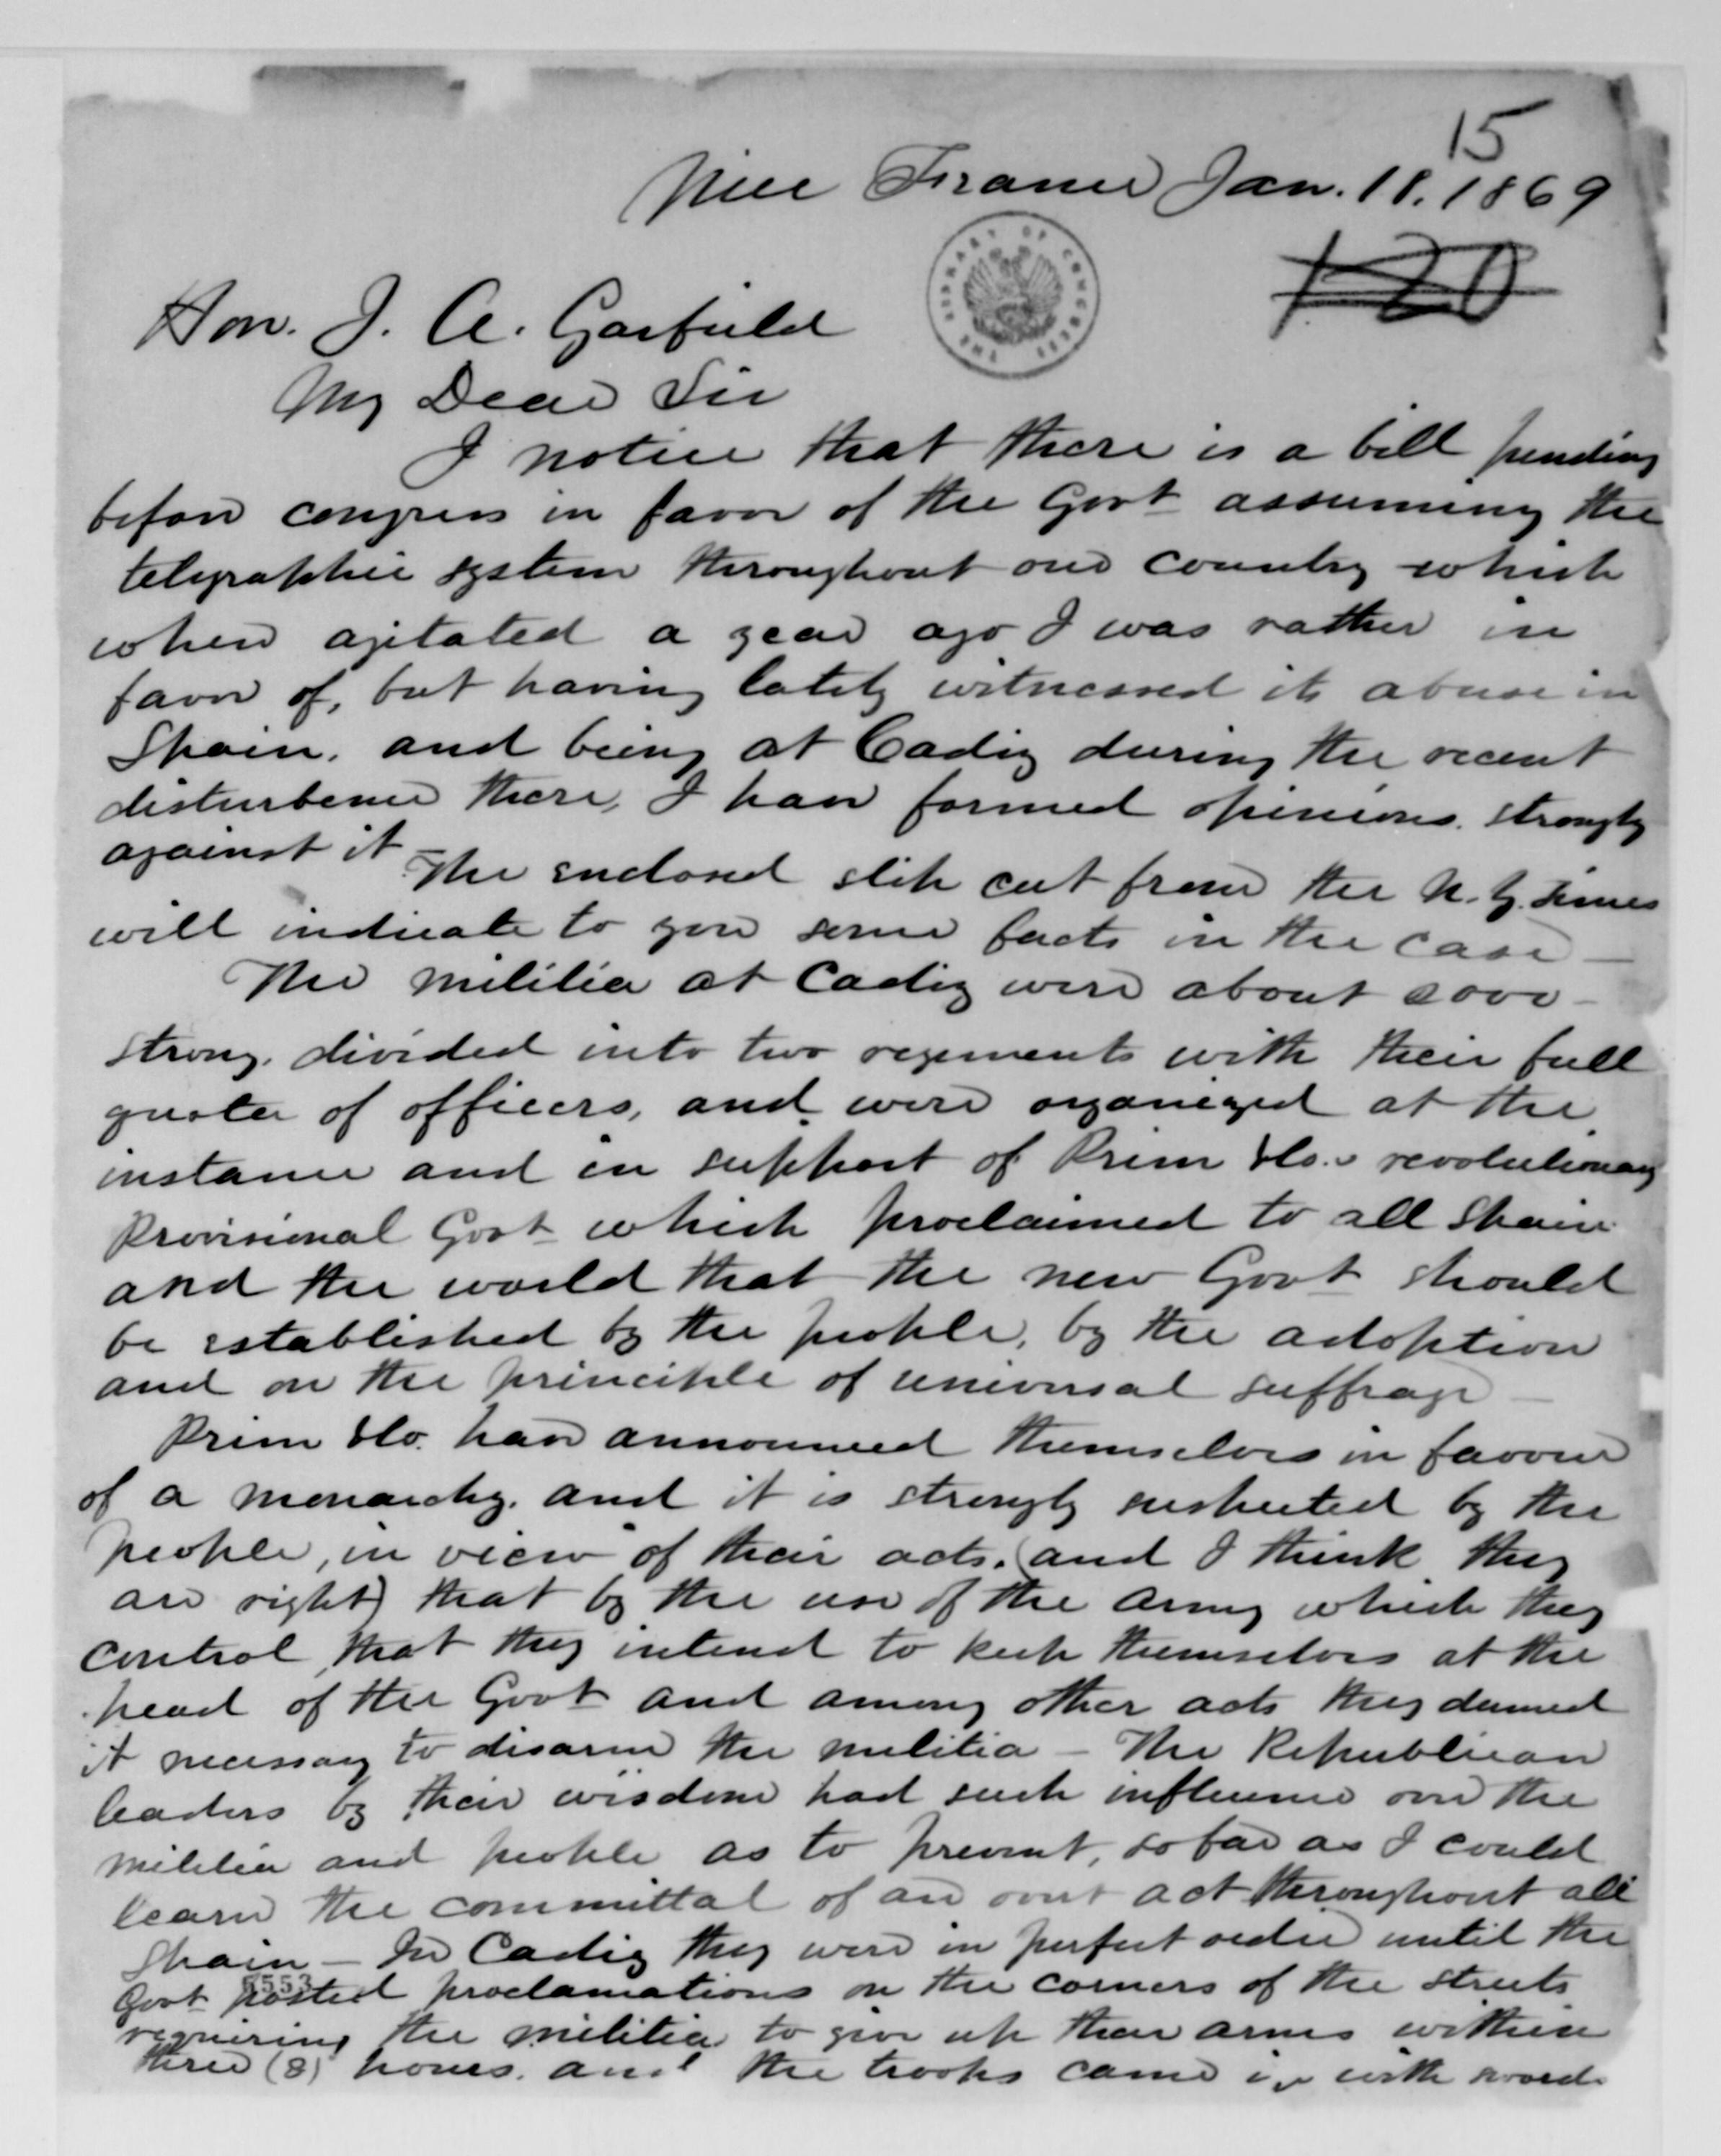 15
Nice France Jan. 18. 1869
120
THE LIBRARY OF CONGRESS
Hon. J. A. Garfield
My Dear Sir
I notice that there is a bill pending
before congress in favor of the Govt assuming the
telegraphic system throughout our country which
when agitated a year ago I was rather in
favor of, but having lately witnessed its abuse in
Spain, and being at Cadiz during the recent
disturbence there, I have formed opinions strongly
against it. The enclosed slip cut from the N. Y. Times
will indicate to you some facts in the case –
The militia at Cadiz were about
strong, divided into two regiments with their full
quota of officers, and were organized at the
instance and in support of Prim &Co.s revolutionary
Provisional Govt which proclaimed to all Spain
and the world that the new Govt should
be established by the people, by the adoption
and on the principle of universal suffrage –
Prim &Co. have announced themselves in favour
of a monarchy, and it is strongly suspected by the
people, in view of their acts, (and I think they
are right) that by the use of the army which they
control, that they intend to keep themselves at the
head of the Govt and among other acts they deemed
it necessary to disarm the militia – The Republican
leaders by their wisdom had such influence over the
militia and people as to prevent, so far as I could
learn the committal of an overt act throughout all
Spain – In Cadiz they were in perfect order until the
Govt posted proclamations on the corners of the streets
requiring the militia to give up their arms within
three (3) hours, and the troops came in with